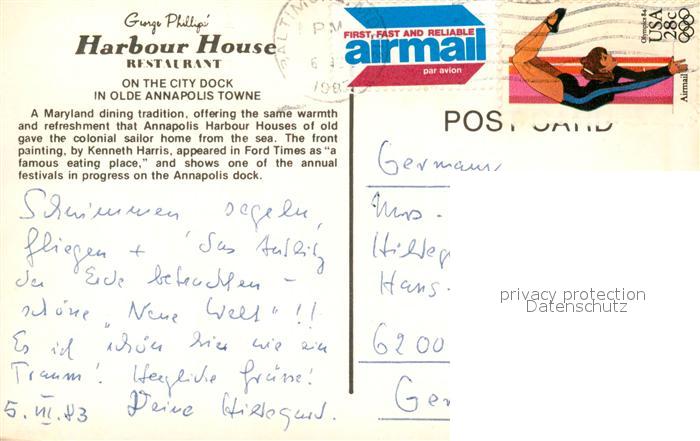 George Phillips'
Harbour House
RESTAURANT
ON THE CITY DOCK
IN OLDE ANNAPOLIS TOWNE
A Maryland dining tradition, offering the same warmth
and refreshment that Annapolis Harbour Houses of old
gave the colonial sailor home from the sea. The front
painting, by Kenneth Harris, appeared in Ford Times as "a
famous eating place," and shows one of the annual
festivals in progress on the Annapolis dock.
Schwimmen segeln,
fliegen + das Antlitz
der Erde betrachten –
schöne "Neue Welt"!!
Es ist schön hier wie ein
Traum! Herzliche Grüsse!
5. VI. 83 Deine Hildegard.
PM
FIRST, FAST AND RELIABLE
airmail
par avion
Olympics 84
USA
28c
Airmail
POST CARD
Germany
Mrs.
Hans.
6200
Ger
privacy protection
Datenschutz